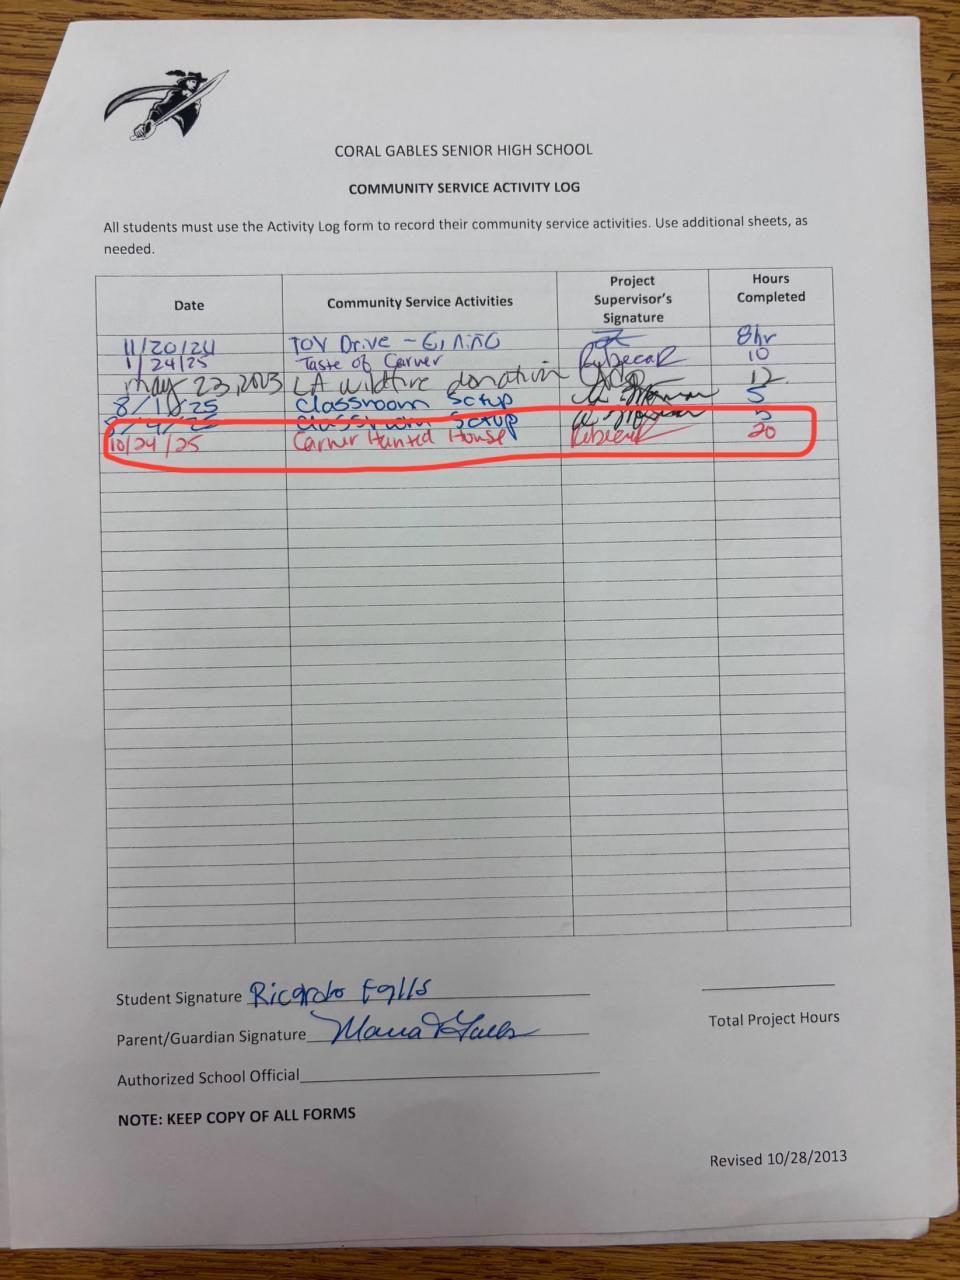 CORAL GABLES SENIOR HIGH SCHOOL
COMMUNITY SERVICE ACTIVITY LOG
All students must use the Activity Log form to record their community service activities. Use additional sheets, as
needed.
Date Community Service Activities Project Supervisor's Signature Hours Completed
11/20/24 TOY Drive - 8hr
1/24/25 Taste of Carver RybecaR 10
may 23, 2003 LA wildfire donation 12
8/1 /25 Classroom Setup 5
Classroom Setup 5
10/24/25 Carver Hunted House 20
Student Signature Ricardo Falls
Total Project Hours
Parent/Guardian Signature Maria Falls
Authorized School Official
NOTE: KEEP COPY OF ALL FORMS
Revised 10/28/2013